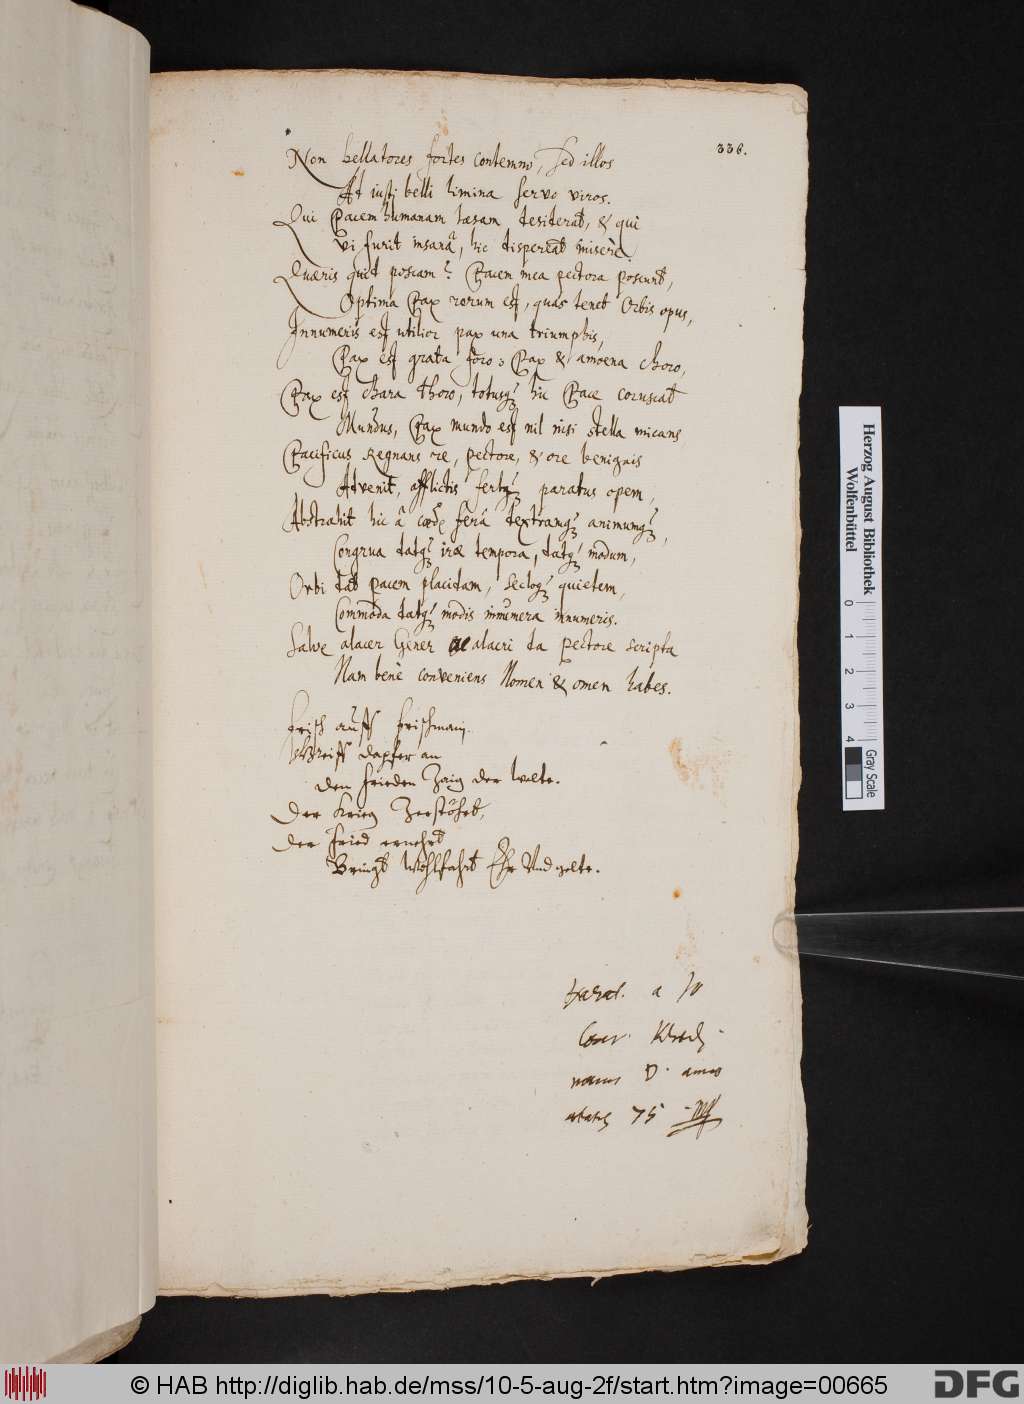 336.
Non bellatores fortes contemno, sed illos
At justi belli limina servo viros.
Qui Pacem humanam læsam desiderat, & qui
Vi furit insanâ, hic dispereat miserè.
Quæris quid poscam? Pacem mea pectora poscunt,
Optima Pax rerum est, quas tenet Orbis opus,
Innumeris est utilior pax una triumphis,
Pax est grata foro, Pax & amoena choro,
Pax est chara thoro, totusq́ hic Pace coruscat
Mundus, Pax mundo est nil nisi stella micans
Pacificus Regnans re, pectore, & ore benignis
Advenit, afflictis fertq́ paratus opem,
Abstrahit hic â cæde ferâ dextramq́ animumq́,
Congrua datq́ iræ tempora, datq́ modum,
Orbi dat pacem placidam, secloq́ quietem,
Commoda datq́ modis innumera innumeris.
Salve alacer Gener alacri da pectore scripta
Nam benè conveniens Nomen & omen habes.
Frisch auff Frischmann
Greiff dapfer an
Den Frieden Zaig der welte.
Der Krieg Zerstöhrt,
der Fried ernehrt
Bringt Wohlfahrt Ehr Und gelte.
a Jo
manus D. anno
ætatis 75
Herzog August Bibliothek
Wolfenbüttel
0 1 2 3 4
Gray Scale
© HAB http://diglib.hab.de/mss/10-5-aug-2f/start.htm?image=00665
DFG